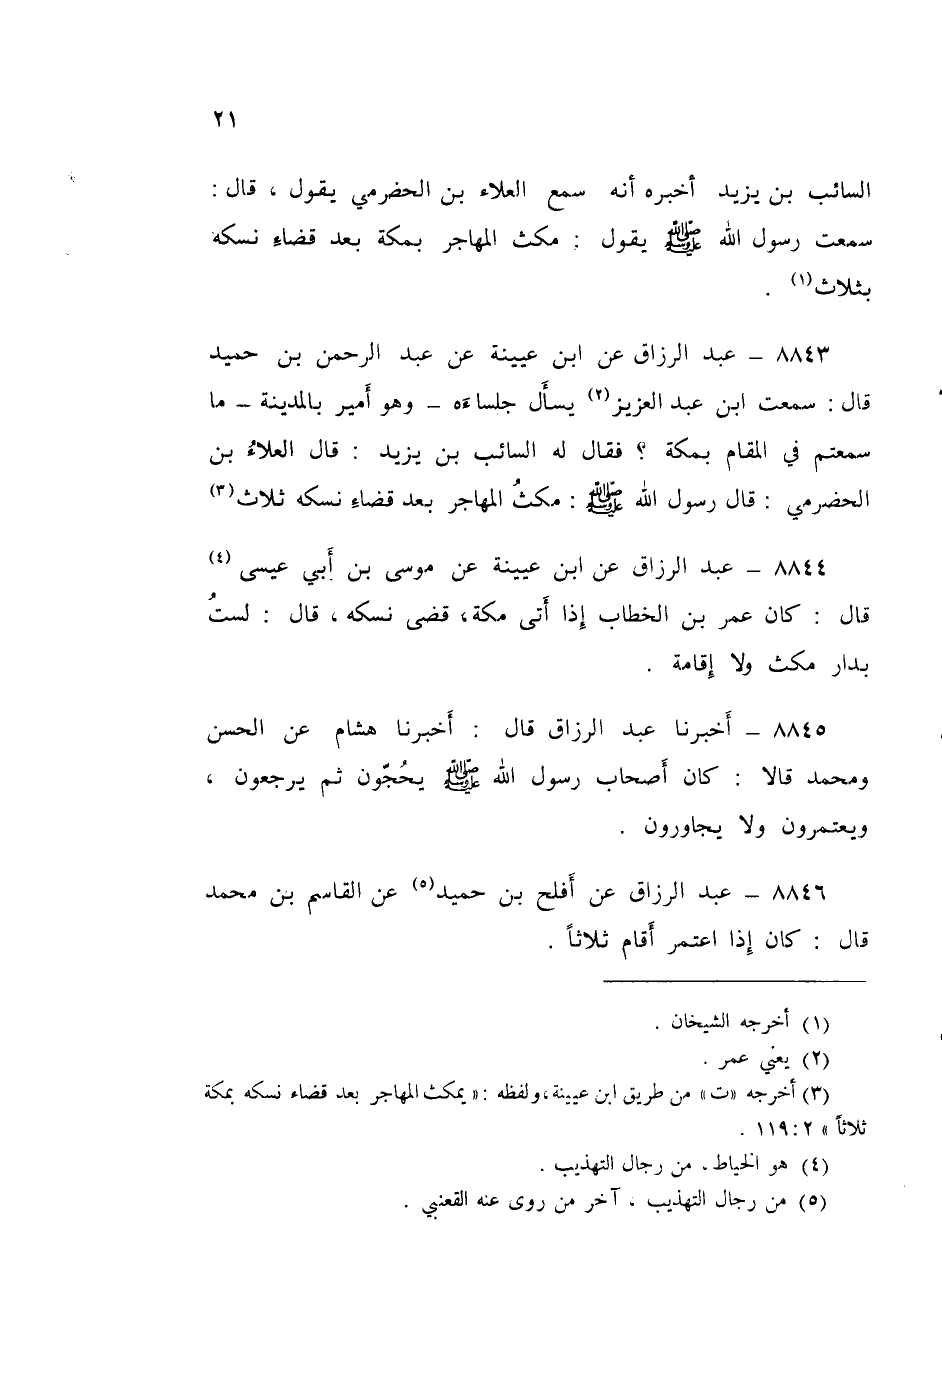 ٢١
السائب بن يزيد أخبره أنه سمع العلاء بن الحضرمي يقول ، قال :
سمعت رسول الله ﷺ يقول : مكث المهاجر بمكة بعد قضاءِ نسكه
بثلاث(١) .
٨٨٤٣ ــ عبد الرزاق عن ابن عيينة عن عبد الرحمن بن حميد
قال : سمعت ابن عبد العزيز(٢) يسأَل جلساءَه ــ وهو أَمير بالمدينة ــ ما
سمعتم في المقام بمكة ؟ فقال له السائب بن يزيد : قال العلاءُ بن
الحضرمي : قال رسول الله ﷺ : مكثُ المهاجر بعد قضاءِ نسكه ثلاث(٣)
٨٨٤٤ ــ عبد الرزاق عن ابن عيينة عن موسى بن أَبي عيسى (٤)
قال : كان عمر بن الخطاب إِذا أَتى مكة ، قضى نسكه ، قال : لستُ
بدار مكث ولا إِقامة .
٨٨٤٥ ــ أَخبرنا عبد الرزاق قال : أَخبرنا هشام عن الحسن
ومحمد قالا : كان أَصحاب رسول الله ﷺ يحُجّون ثم يرجعون ،
ويعتمرون ولا يجاورون .
٨٨٤٦ ــ عبد الرزاق عن أَفلح بن حميد(٥) عن القاسم بن محمد
قال : كان إِذا اعتمر أَقام ثلاثاً .
(١) أخرجه الشيخان .
(٢) يعني عمر .
(٣) أخرجه «ت» من طريق ابن عيينة ، ولفظه : « يمكث المهاجر بعد قضاء نسكه بمكة
ثلاثاً » ٢ : ١١٩ .
(٤) هو الخياط . من رجال التهذيب .
(٥) من رجال التهذيب ، آخر من روى عنه القعنبي .